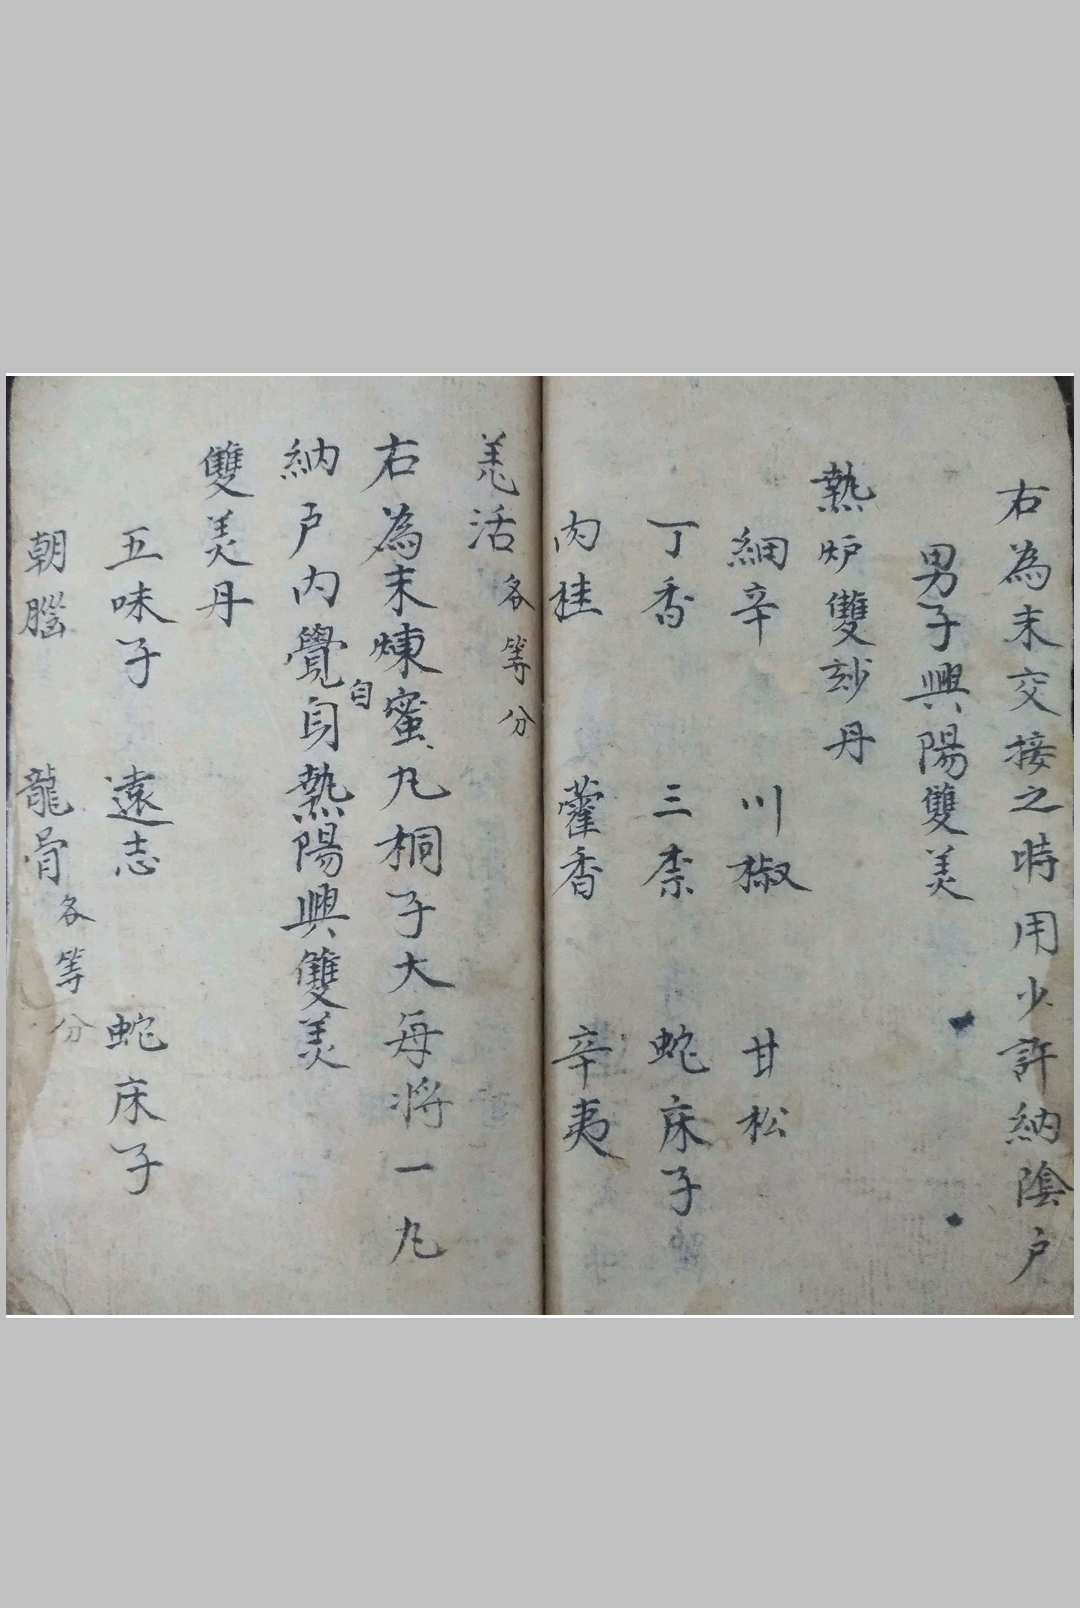 右為末交接之時用少許納陰户
男子興陽雙美
熱炉雙玅丹
細辛 川椒 甘松
丁香 三柰 蛇床子
肉桂 藿香 辛夷
羗活 各等分
右為末煉蜜丸桐子大每將一丸
納户内覺自熱陽興雙美
自
雙美丹
五味子 遠志 蛇床子
朝腦 龍骨 各等分